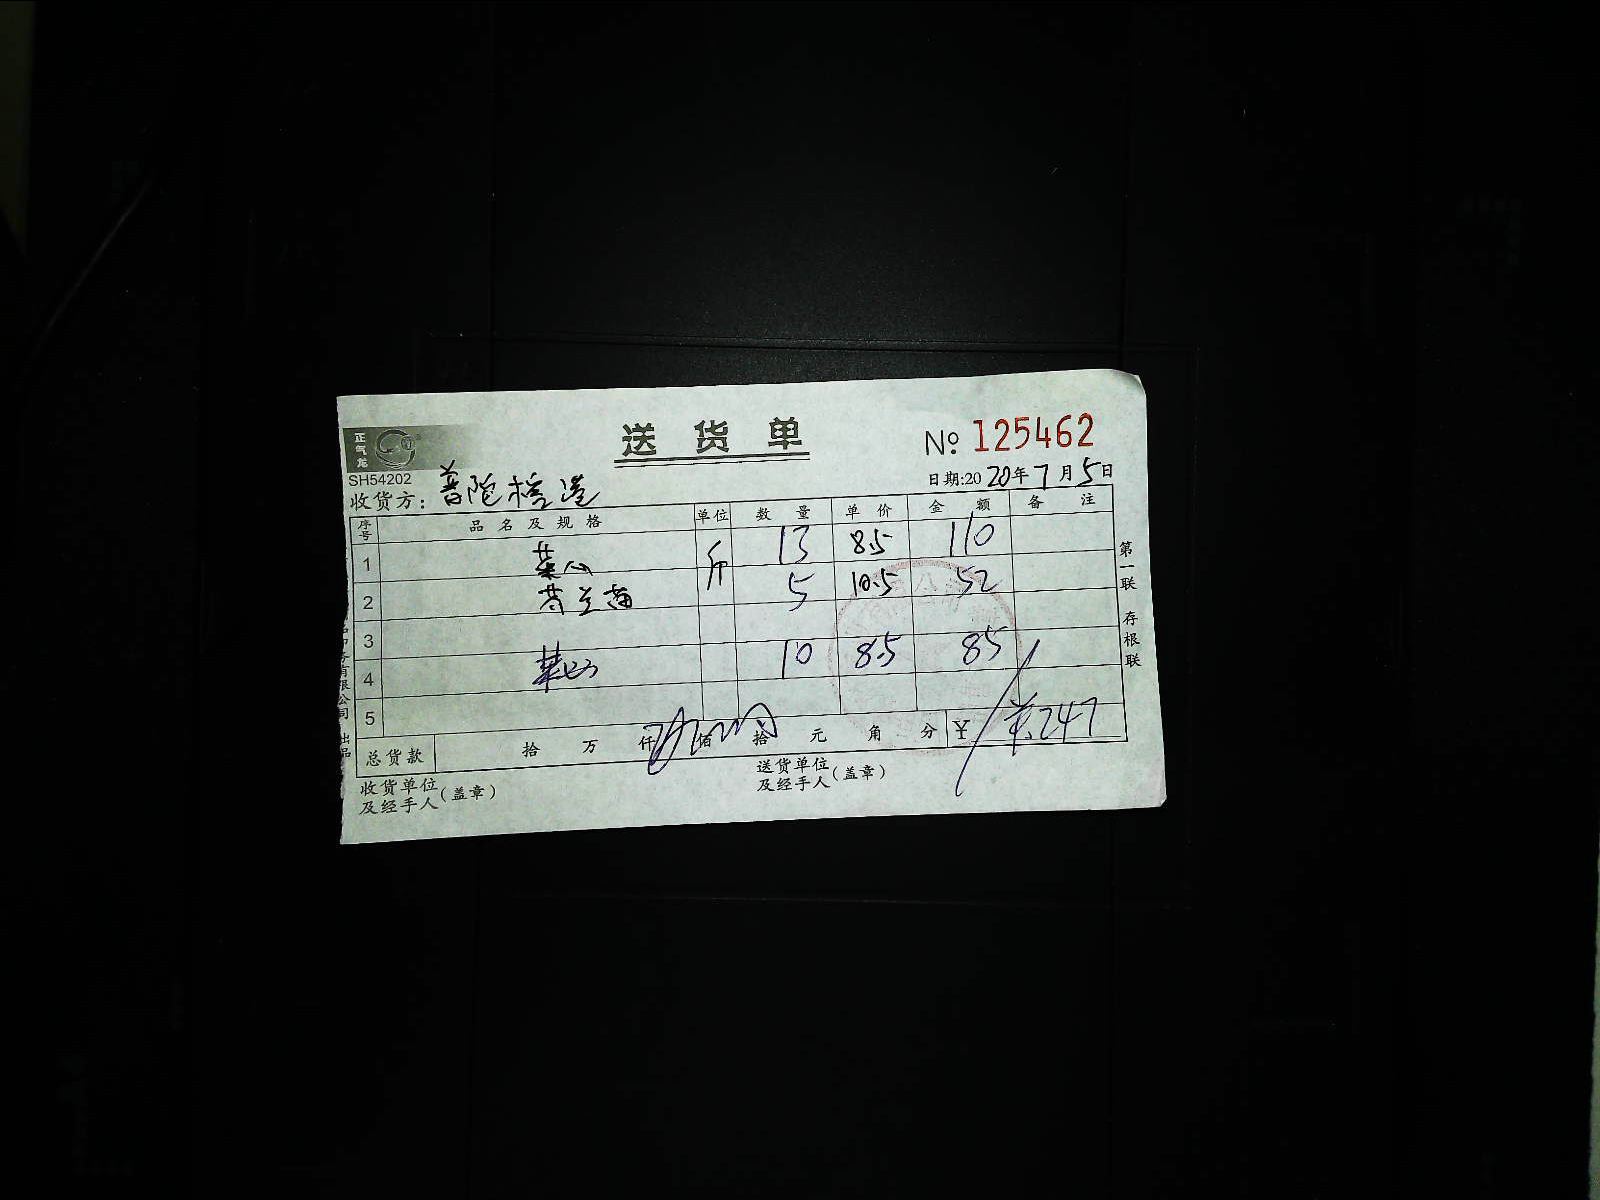 正气龙
SH54202
送货单
No 125462
收货方：普陀
日期:2020年7月5日
序号 品名及规格 单位 数量 单价 金额 备注
1 菜心 斤 13 8.5 110
2 苗 5 10.5 52
3
4 菜心 10 8.5 85
5
总货款 拾 万 仟 佰 拾 元 角 分 ¥ 247
收货单位及经手人(盖章)
送货单位及经手人(盖章)
第一联 存根联